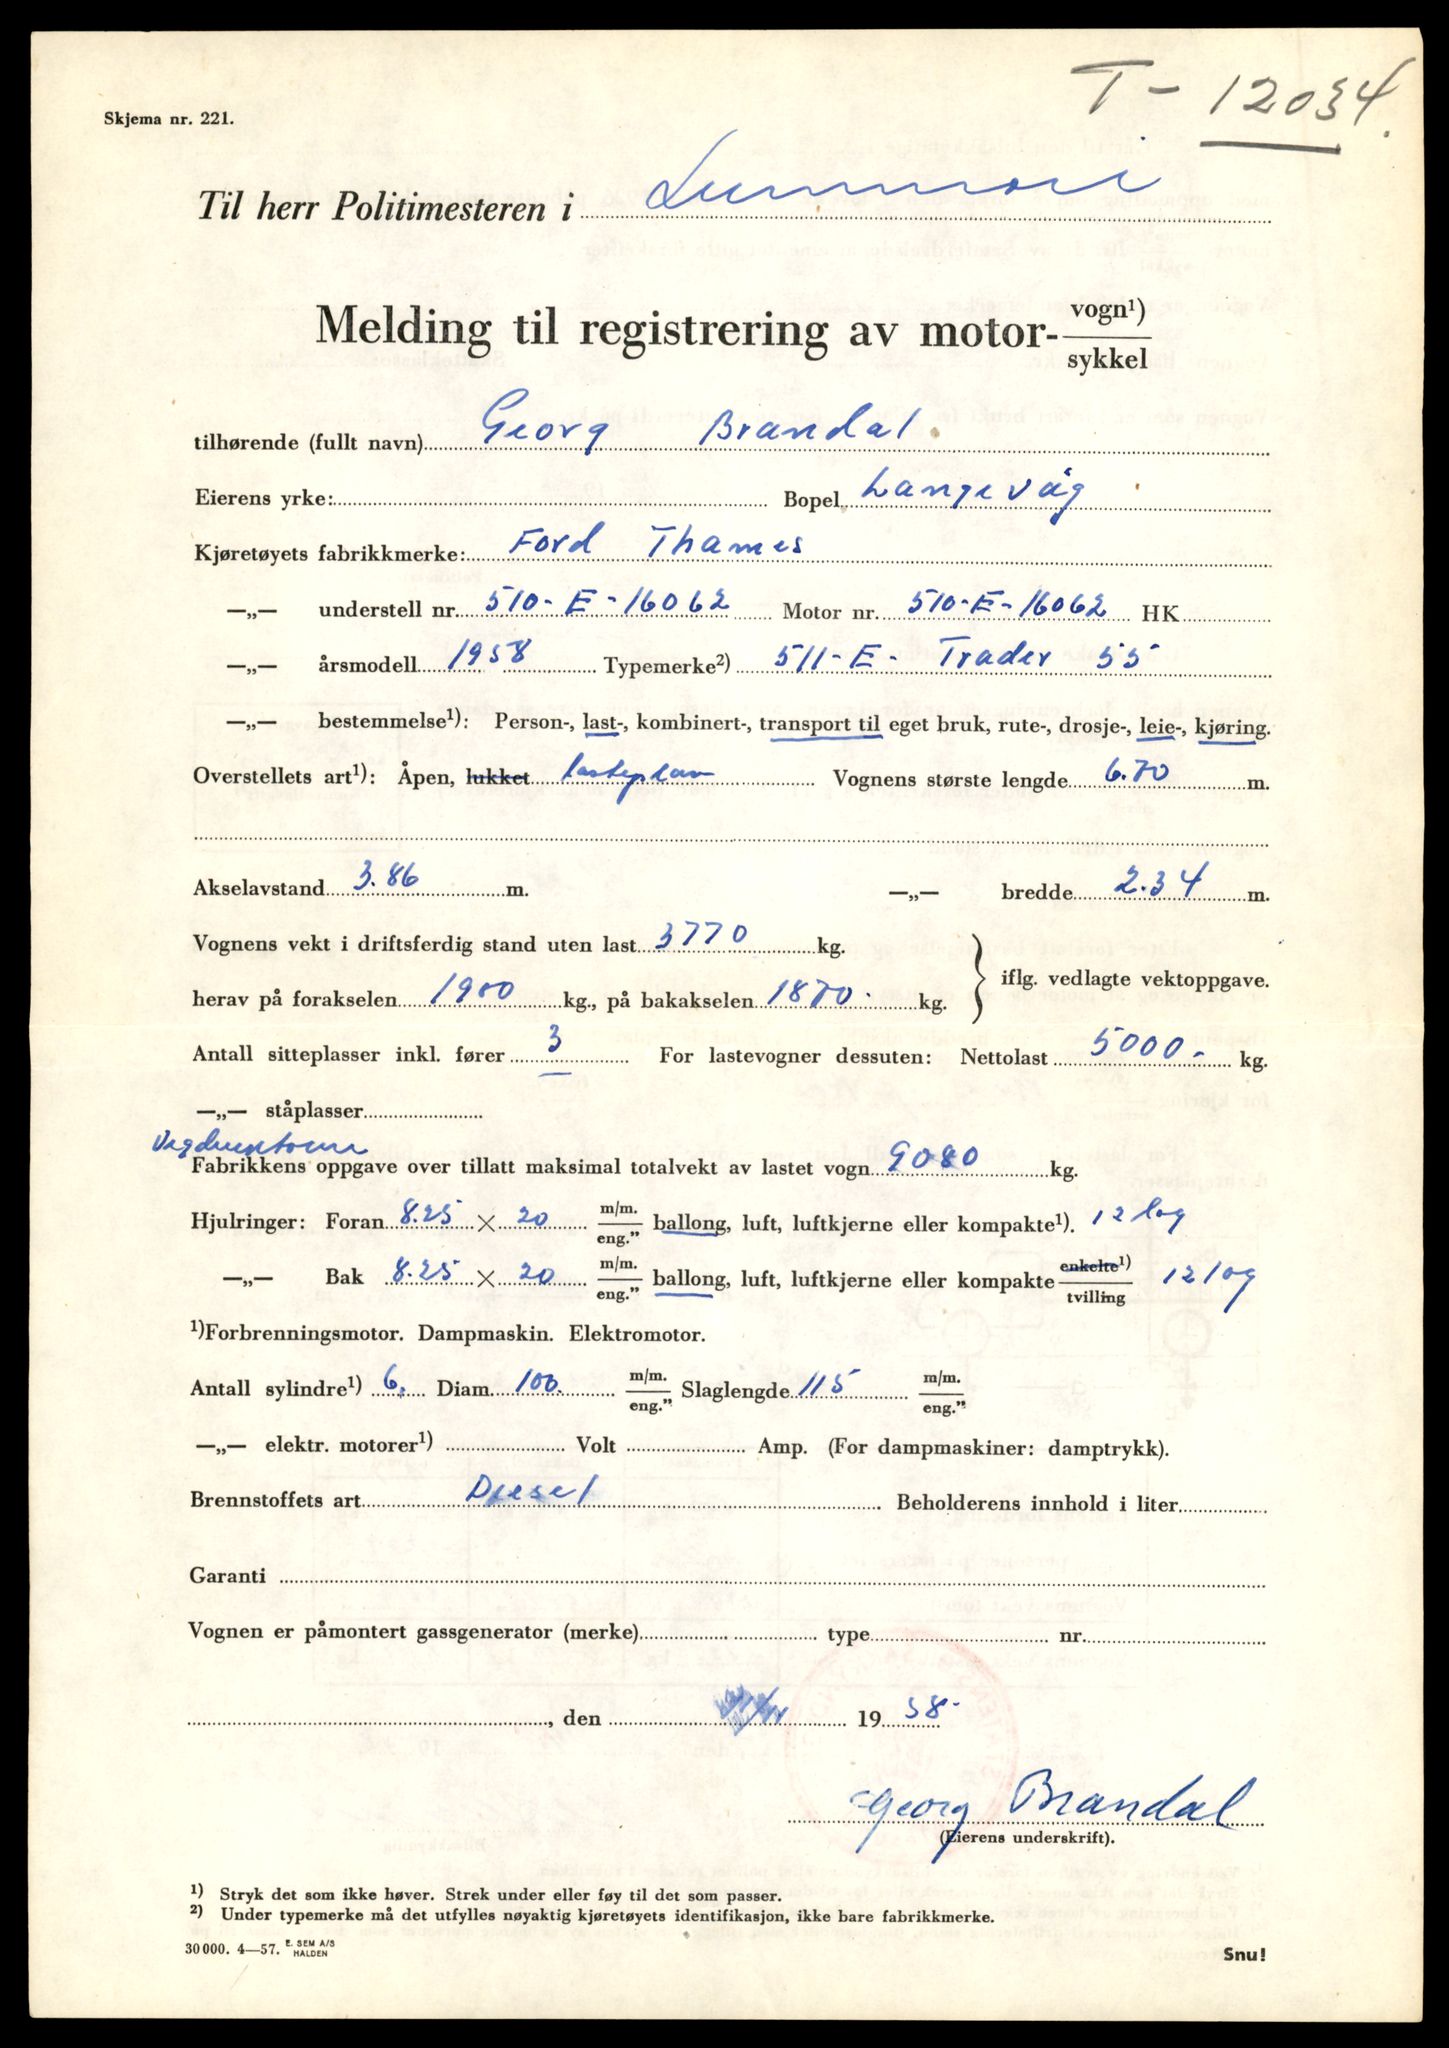 T - 12034.
Skjema nr. 221.
Til herr Politimesteren i Sunnmøre
Melding til registrering av motor- vogn¹) / sykkel
tilhørende (fullt navn) Georg Brandal
Eierens yrke: Bopel Langevåg
Kjøretøyets fabrikkmerke: Ford Thames
—„— understell nr. 510-E-16062 Motor nr. 510-E-16062 HK
—„— årsmodell 1958 Typemerke²) 511-E- Trader 55
—„— bestemmelse¹): Person-, last-, kombinert-, transport til eget bruk, rute-, drosje-, leie-, kjøring.
Overstellets art¹): Åpen, lukket lasteplan Vognens største lengde 6.70 m.
Akselavstand 3.86 m. —„— bredde 2.34 m.
Vognens vekt i driftsferdig stand uten last 3770 kg.
herav på forakselen 1900 kg., på bakakselen 1870. kg. iflg. vedlagte vektoppgave.
Antall sitteplasser inkl. fører 3 For lastevogner dessuten: Nettolast 5000.- kg.
—„— ståplasser
Fabrikkens oppgave over tillatt maksimal totalvekt av lastet vogn 9080 kg.
Hjulringer: Foran 8.25 × 20 m/m. / eng.” ballong, luft, luftkjerne eller kompakte¹). 12 log
—„— Bak 8.25 × 20 m/m. / eng.” ballong, luft, luftkjerne eller kompakte enkelte¹) / tvilling 12 log
¹)Forbrenningsmotor. Dampmaskin. Elektromotor.
Antall sylindre¹) 6. Diam. 100. m/m. / eng.” Slaglengde 115 m/m. / eng.”
—„— elektr. motorer¹) Volt Amp. (For dampmaskiner: damptrykk).
Brennstoffets art Diesel Beholderens innhold i liter
Garanti
Vognen er påmontert gassgenerator (merke) type nr.
, den 19 58-
Georg Brandal
(Eierens underskrift).
¹) Stryk det som ikke høver. Strek under eller føy til det som passer.
²) Under typemerke må det utfylles nøyaktig kjøretøyets identifikasjon, ikke bare fabrikkmerke.
30 000. 4—57. E. SEM A/S HALDEN
Snu!